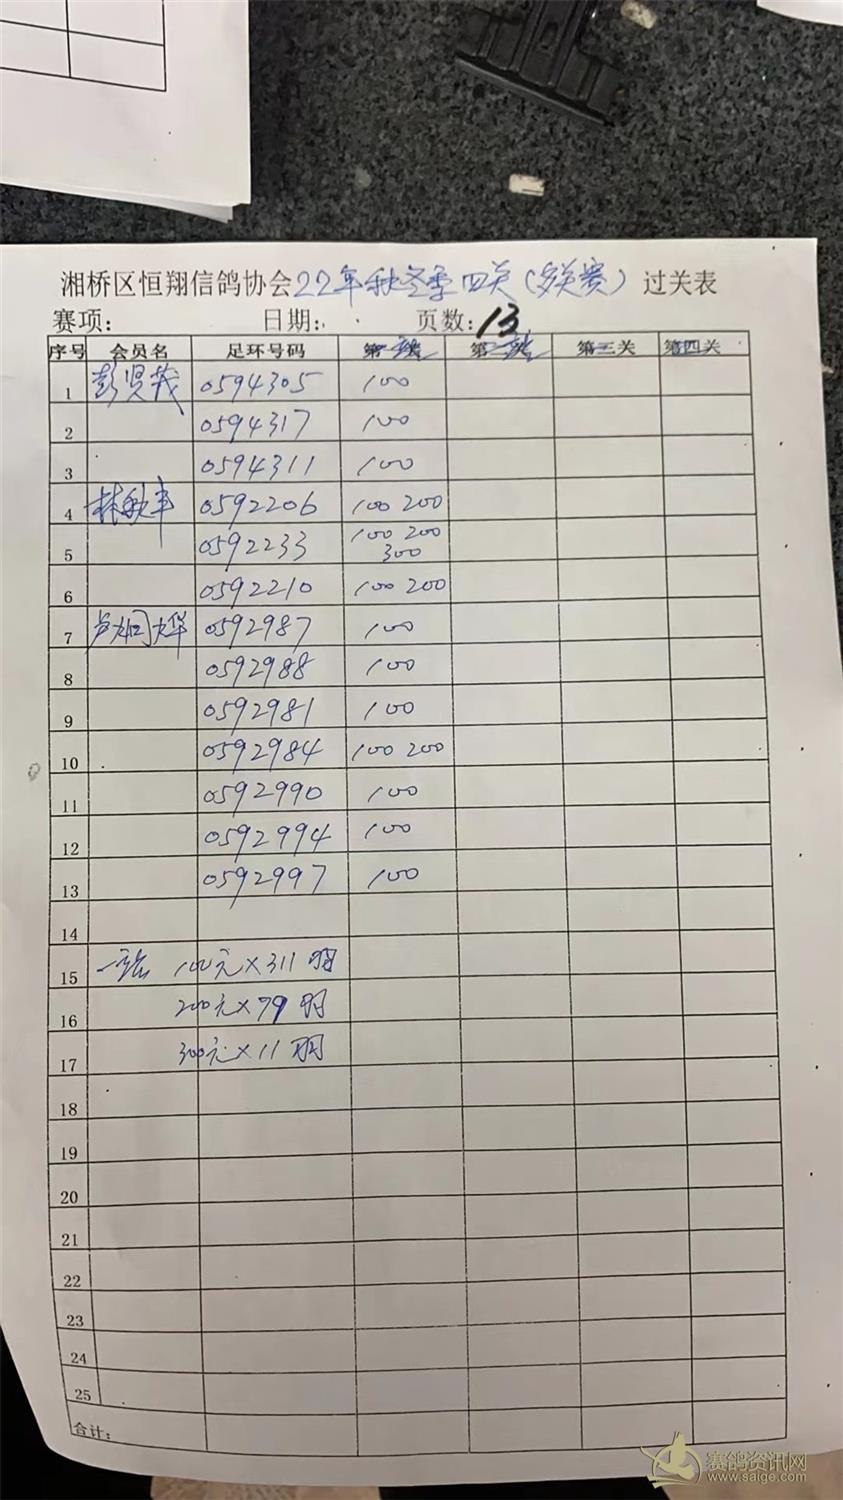 湘桥区恒翔信鸽协会22年秋冬季四关(多关赛)过关表
赛项: 日期: 页数:13
序号 会员名 足环号码 第一站 第二站 第三关 第四关
1 彭贤茂 0594305 100
2 0594317 100
3 0594311 100
4 林秋丰 0592206 100 200
5 0592233 100 200 300
6 0592210 100 200
7 0592987 100
8 0592988 100
9 0592981 100
10 0592984 100 200
11 0592990 100
12 0592994 100
13 0592997 100
14
15 一站 100元×311羽
16 200元×79羽
17 300元×11羽
18
19
20
21
22
23
24
25
合计:
赛鸽资讯网
www.saige.com